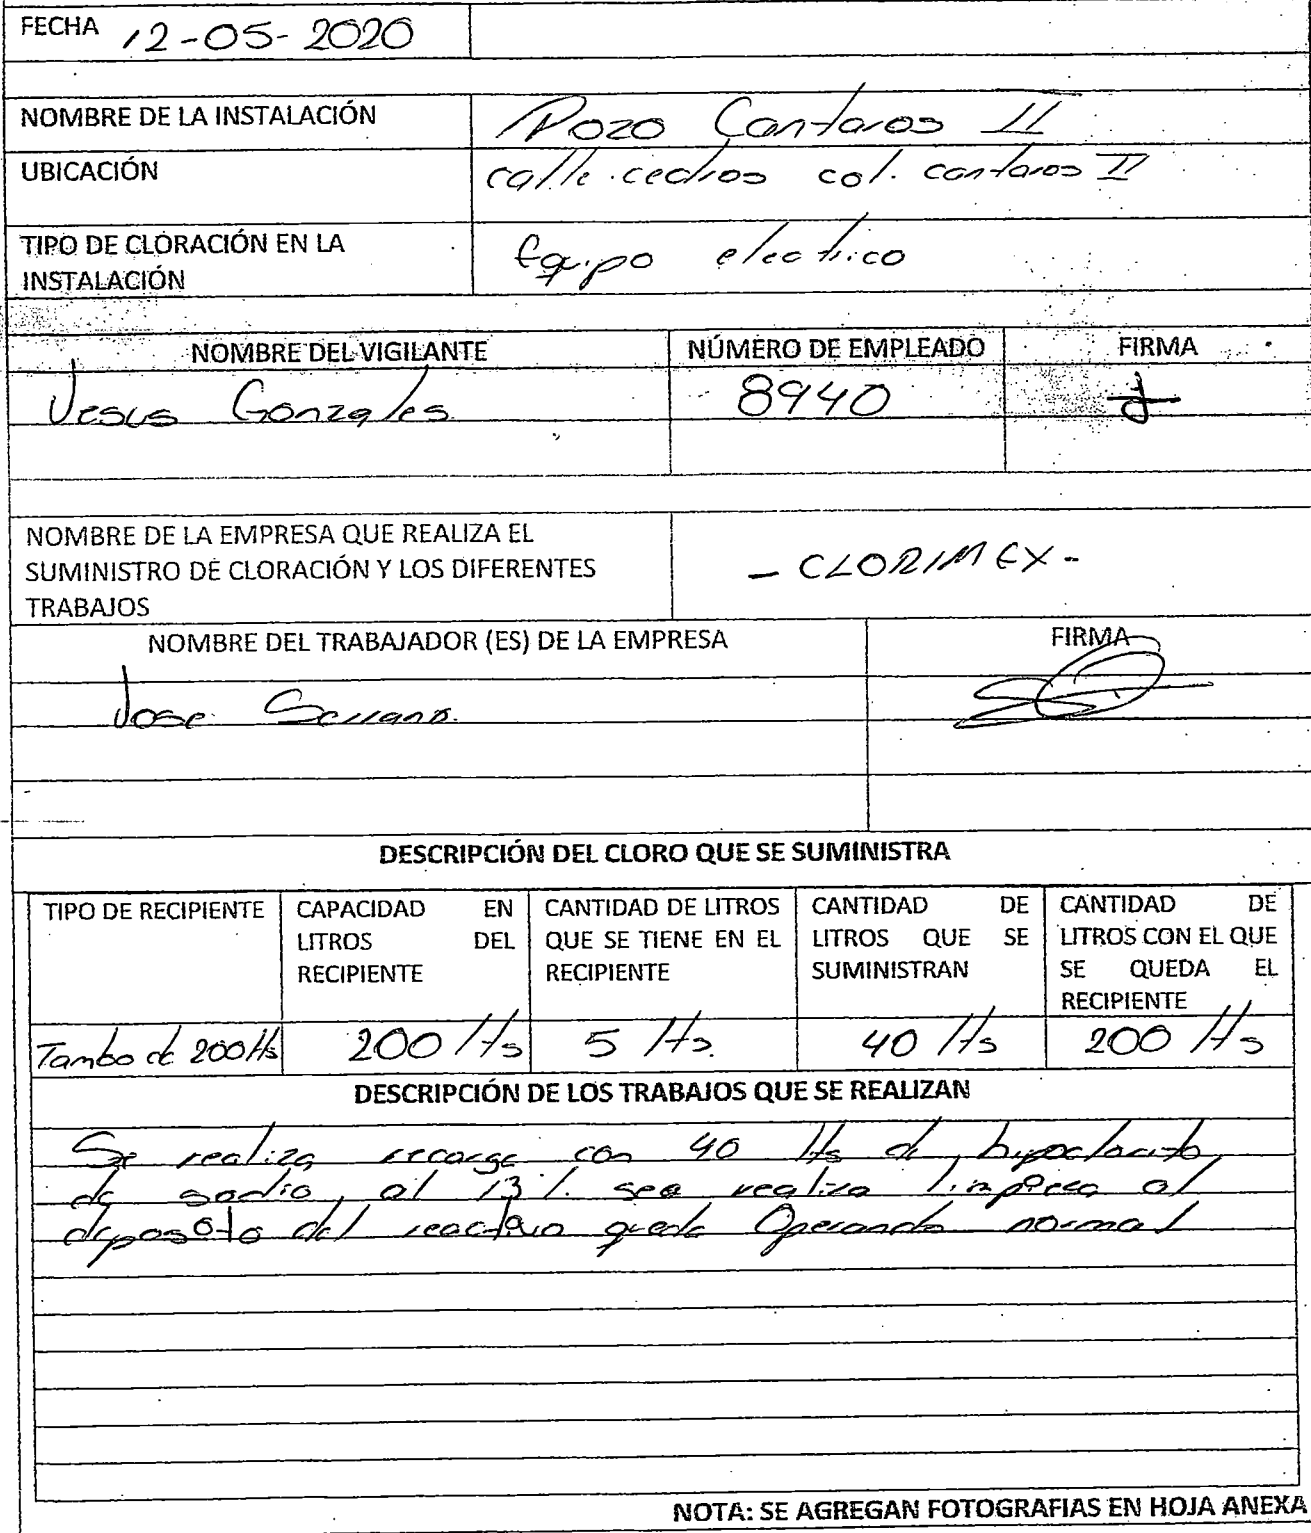 FECHA 12-05-2020
NOMBRE DE LA INSTALACIÓN Pozo Cantaros II
UBICACIÓN calle cedros col. cantaros II
TIPO DE CLORACIÓN EN LA
INSTALACIÓN Equipo electrico
NOMBRE DEL VIGILANTE NÚMERO DE EMPLEADO FIRMA
Jesus Gonzales. 8940
NOMBRE DE LA EMPRESA QUE REALIZA EL
SUMINISTRO DE CLORACIÓN Y LOS DIFERENTES
TRABAJOS
- CLORIMEX -
NOMBRE DEL TRABAJADOR (ES) DE LA EMPRESA FIRMA
Jose Serrano.
DESCRIPCIÓN DEL CLORO QUE SE SUMINISTRA
TIPO DE RECIPIENTE
CAPACIDAD EN
LITROS DEL
RECIPIENTE
CANTIDAD DE LITROS
QUE SE TIENE EN EL
RECIPIENTE
CANTIDAD DE
LITROS QUE SE
SUMINISTRAN
CANTIDAD DE
LITROS CON EL QUE
SE QUEDA EL
RECIPIENTE
Tambo de 200 lts 200 lts 5 lts. 40 lts 200 lts
DESCRIPCIÓN DE LOS TRABAJOS QUE SE REALIZAN
Se realiza recarga con 40 lts de hipoclorito
de sodio, al 13%. sea realiza limpieza al
deposito del reactivo queda Operando normal
NOTA: SE AGREGAN FOTOGRAFIAS EN HOJA ANEXA